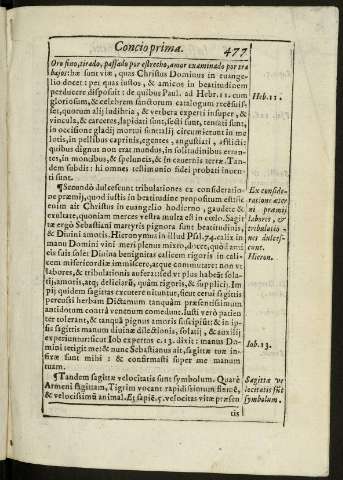 Concio prima. 477
Oro fino, tirado, passado por estrecho, amor examinado por tra
bajos: hæ sunt viæ, quas Christus Dominus in euange-
lio docet: per quas iustos, & amicos in beatitudinem
perducere disposuit: de quibus Paul. ad Hebr. 11. cum
gloriosum, & celebrem sanctorum catalogum recēsuis-
set, quorum alij ludibria, & verbera experti insuper, &
vincula, & carceres, lapidati sunt, secti sunt, tentati sunt,
in occisione gladij mortui sunt: alij circumierunt in me
lotis, in pellibus caprinis, egentes, angustiati, afflicti:
quibus dignus non erat mundus, in solitudinibus erran-
tes, in montibus, & speluncis, & in cauernis terræ. Tan-
dem subdit: hi omnes testimonio fidei probati inuen-
ti sunt.
Heb. 11.
¶ Secundò dulcescunt tribulationes ex consideratio-
ne præmij, quod iustis in beatitudine propositum est: si
enim ait Christus in euangelio hodierno, gaudete &
exultate, quoniam merces vestra multa est in cœlo. Sagit
tæ ergò Sebastiani martyris pignora sunt beatitudinis,
& Diuini amoris. Hieronymus in illud Psal. 74. calix in
manu Domini vini meri plenus mixto, docet, quòd ami
cis suis solet Diuina benignitas calicem rigoris in cali-
cem misericordiæ immiscere, atque commutare: non vt
labores, & tribulationis auferat: sed vt plus habeāt sola-
tij, amoris, atq; deliciarū, quàm rigoris, & supplicij. Im
pij quidem sagittas excutere nituntur, sicut cerui sagittis
percussi herbam Dictamum tanquàm præsentissimum
antidotum contrà venenum comedunt. Iusti verò patien
ter tolerant, & tanquā pignus amoris suscipiūt: & in ip-
sis sagittis manum diuinæ dilectionis, solatij, & auxilij
experiuntur: sicut Iob expertus c. 13. dixit: manus Do-
mini tetigit me: & nunc Sebastianus ait, sagittæ tuæ in-
fixæ sunt mihi: & confirmasti super me manum
tuam.
Ex conside-
ratione æter
ni præmij
labores, &
tribulatio-
nes dulces-
cunt.
Hieron.
Iob. 13.
¶ Tandem sagittæ velocitatis sunt symbolum. Quarè
Armeni sagittam, Tigrim vocant rapidissimum flumē,
& velocissimū animal. Et sapiē. 5. velocitas vitæ præsen
tis
Sagittæ ve
locitatis sūt
symbolum.